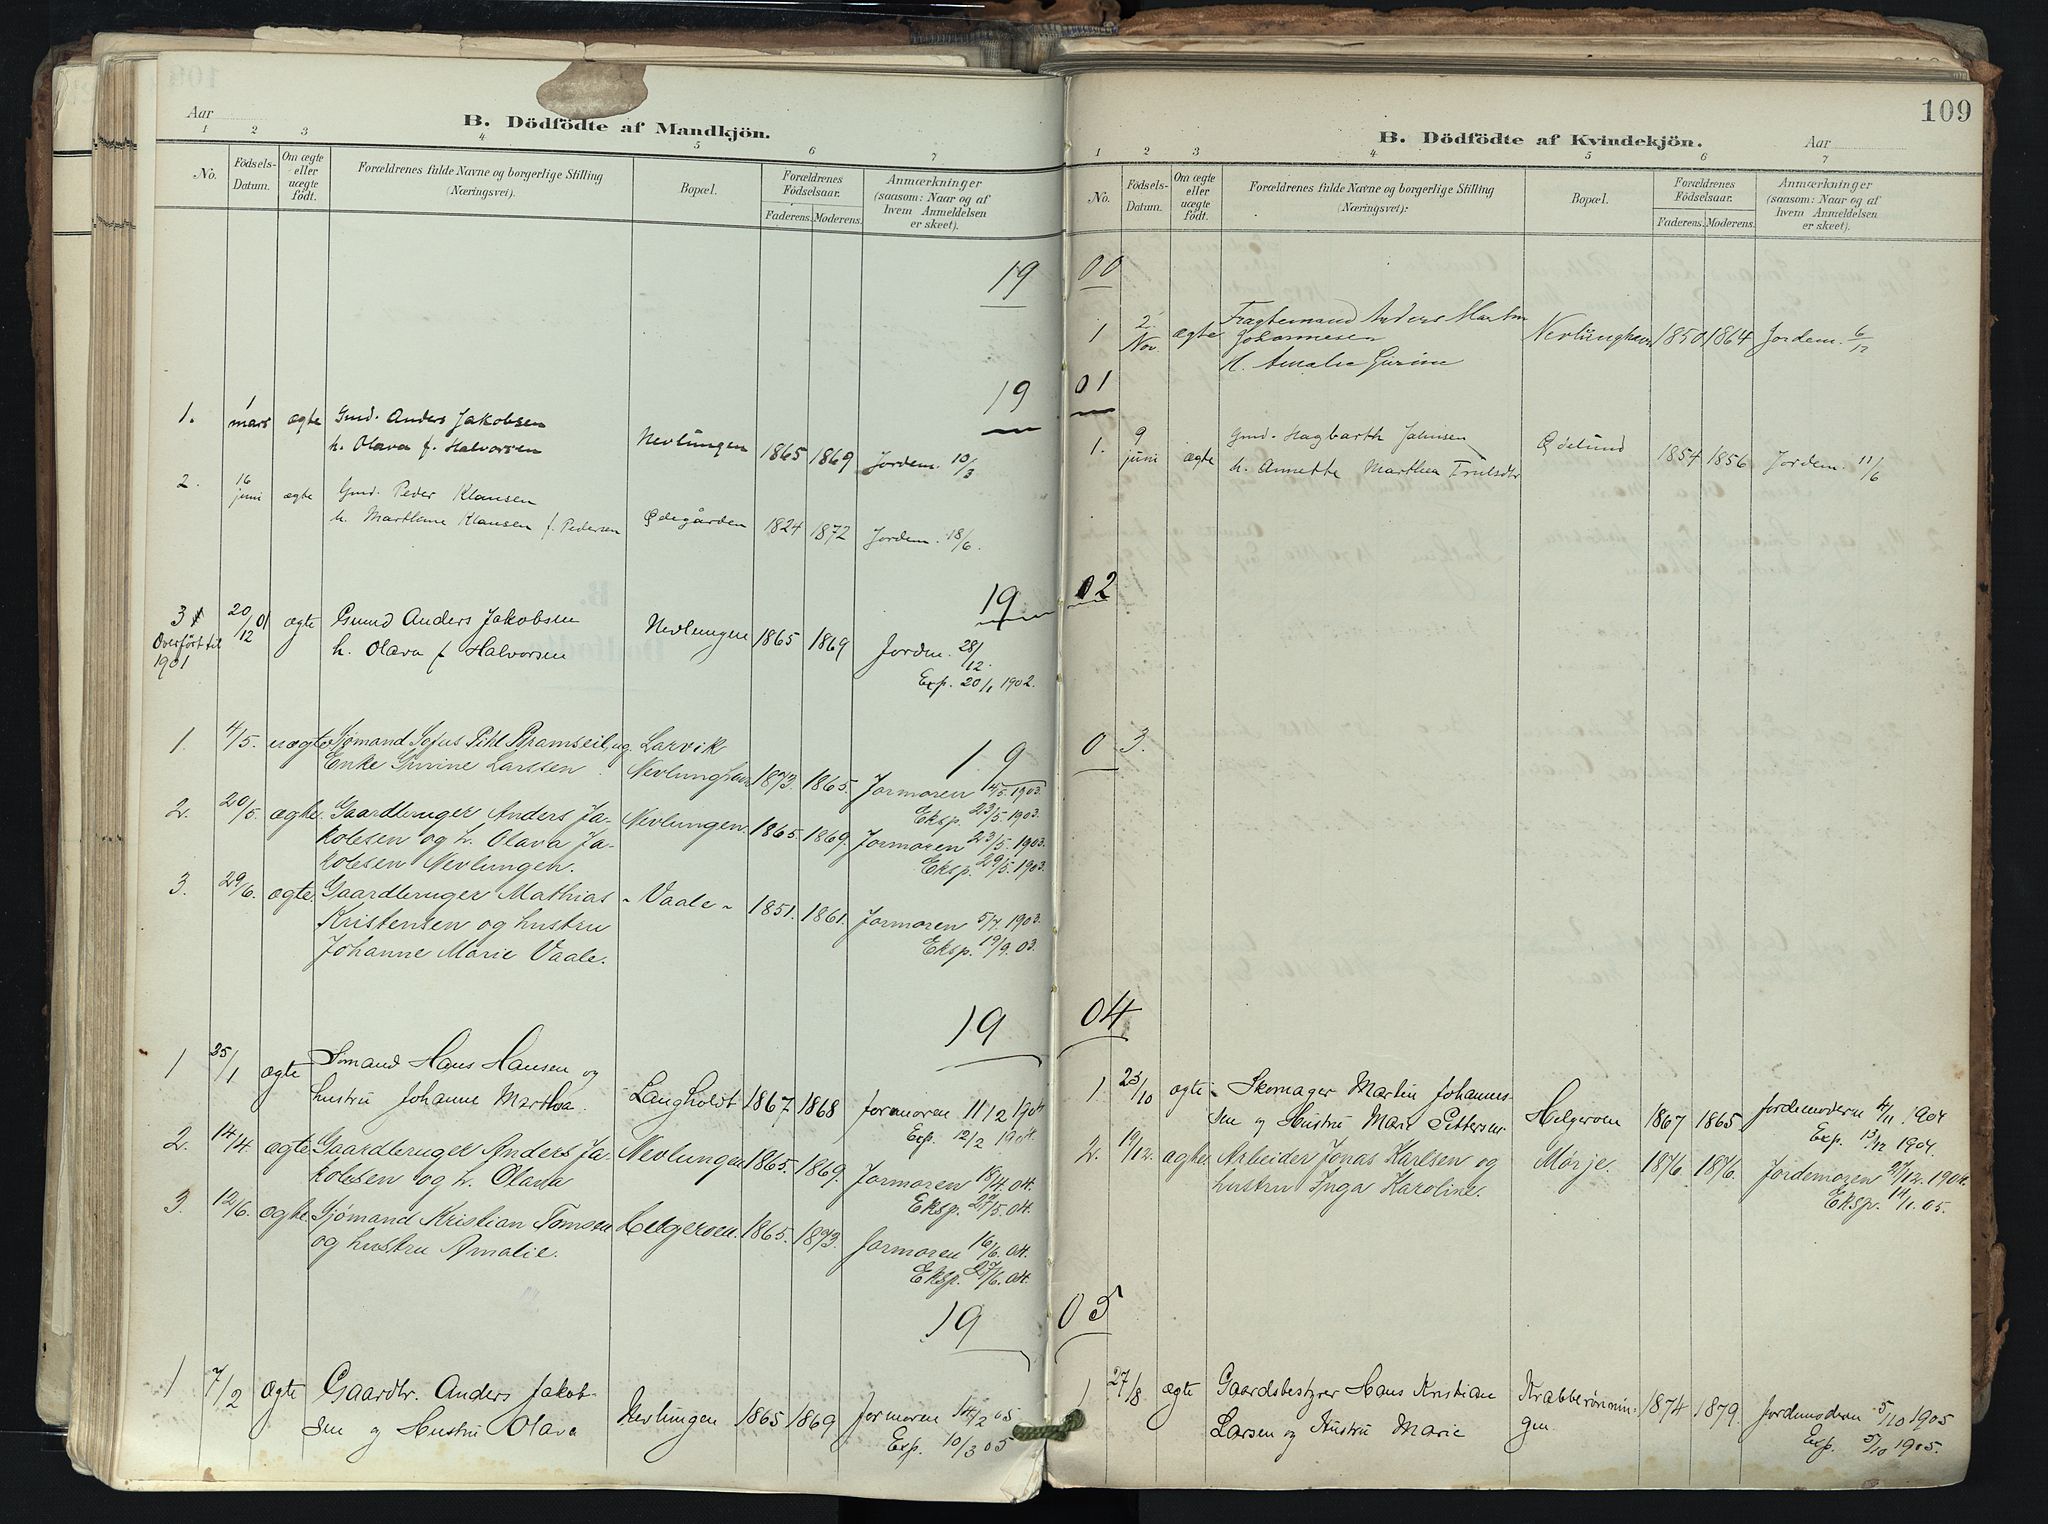 Aar
B. Dödfödte af Mandkjön.
1 2 3 4 5 6 7
No.
Födsels-
Datum.
Om ægte
eller
uægte
födt.
Forældrenes fulde Navne og borgerlige Stilling
(Næringsvei).
Bopæl.
Forældrenes
Födselsaar.
Faderens. Moderens.
Anmærkninger
(saasom: Naar og af
hvem Anmeldelsen
er skeet).
19
19
1. 1 mars ægte Gmd. Anders Jakobsen
h. Olava f. Halvorsen Nevlungen 1865 1869 Jordem. 10/3
2. 16 juni ægte Gmd. Peder Klausen
h. Marthine Klausen f. Pedersen Ødegården 1824 1872 Jordem. 18/6.
19
3 20/12 01 ægte Gmd Anders Jakobsen
Overført til
1901
h. Olava f Halvorsen Nevlungen 1865 1869 Jordm. 28/12.
Exp. 20/1 1902.
19
1. 4/5. uægte Sjømand Sofus Pihl Bramseil, ug. Larvik
Enke Gurine Larssen. Nevlunghavn 1873. 1865. Jormoren 14/5. 1903.
Eksp. 23/5. 1903.
2. 20/5. ægte. Gaardbruger Anders Ja-
kobsen og h. Olava Ja-
kobsen Nevlungen. Nevlungen. 1865. 1869. Jormoren 23/5. 1903.
Eksp. 29/5. 1903.
3. 29/6. ægte. Gaardbruger Mathias
Kristensen og hustru
Johanne Marie Vaale. - Vaale - 1851. 1861. Jormoren 5/7. 1903.
Eksp. 19/9. 03.
19
1 25/1 ægte Sømand Hans Hansen og
hustru Johanne Martha. Langholdt 1867 1868 Jormoren 11/2 1904
Exp. 12/2 1904.
2. 14/4 ægte Gaardbruger Anders Ja-
kobsen og h. Olava Nevlungen 1865. 1869. Jormoren 18/4. 04.
Eksp. 27/5. 04.
3. 12/6. ægte Sjømand Kristian Tomsen
og hustru Amalie. Helgeroen. 1865. 1873. Jormoren 16/6. 04.
Eksp. 27/6. 04.
19
1 7/2 ægte Gaardbr. Anders Jakob-
sen og Hustru Olava Nevlungen 1865 1869 Jormoren 14/2 05
Exp. 10/3 05
109
B. Dödfödte af Kvindekjön.
Aar
1 2 3 4 5 6 7
No.
Födsels-
Datum.
Om ægte
eller
uægte
födt.
Forældrenes fulde Navne og borgerlige Stilling
(Næringsvei):
Bopæl.
Forældrenes
Födselsaar.
Faderens. Moderens.
Anmærkninger
(saasom: Naar og af
hvem Anmeldelsen
er skeet).
00
1 2. Nov. ægte Fragtemand Anders Martin
Johannesen
H. Amalie Gurine Nevlunghavn 1850 1864 Jordem. 6/12
01
1. 9 juni ægte Gmd. Hagbarth Jahnsen
h. Annette Marthea Trulsdtr Ødelund 1854 1856 Jordem. 11/6
02
03.
04
1 23/10 ægte Skomager Martin Johannes-
sen og Hustru Marie Pettersen Helgeroen 1867 1865. Jordemodern 4/11 1904
Exp. 13/12 1904.
2. 19/12. ægte Arbeider Jonas Karlsen og
hustru Inga Karoline. Mørje. 1876. 1876. Jordemoren 27/12. 1904.
Eksp. 14/1. 05.
05
1 27/8. ægte Gaardsbestyrer Hans Kristian
Larsen og Hustru Marie Krabberønnin-
gen 1874 1879. Jordemodern 5/10 1905
Exp. 5/10 1905.